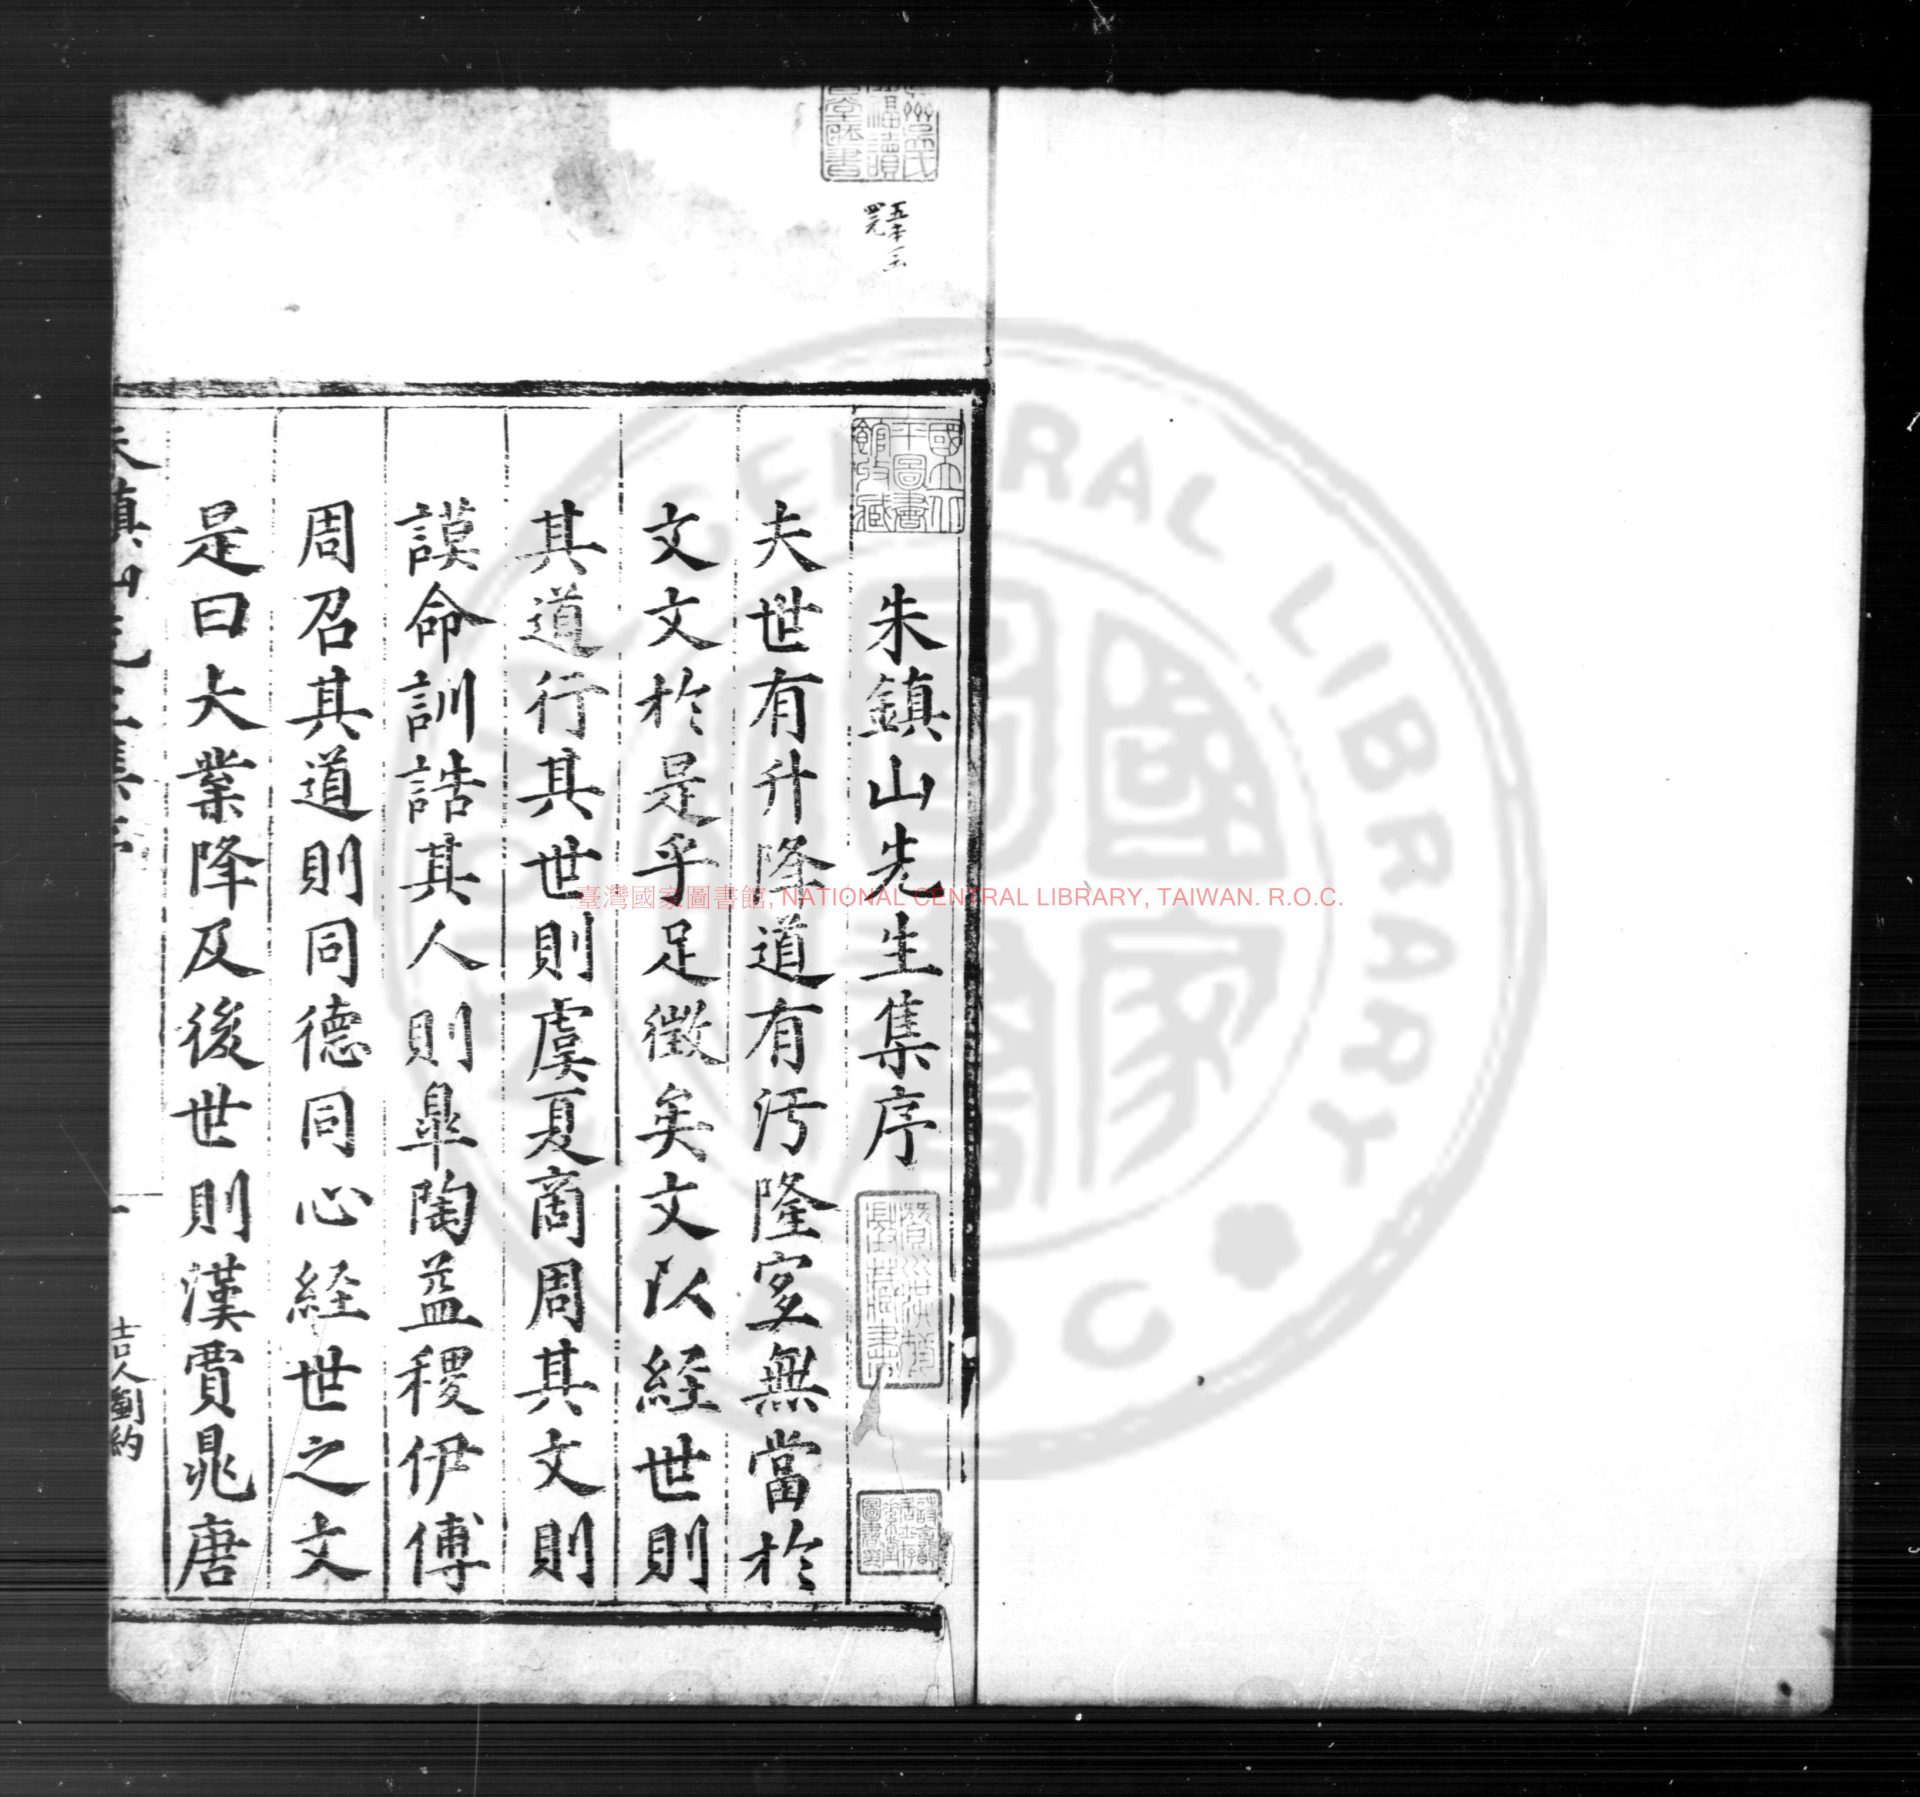 朱鎮山先生集序
夫世有升降道有汚隆寔無當於
文文於是乎足徵矣文以経世則
其道行其世則虞夏商周其文則
謨命訓誥其人則臯陶益稷伊傅
周召其道則同德同心経世之文
是曰大業降及後世則漢賈晁唐
吉人劉約
國立北
平圖書
館收藏
臺灣國家圖書館, NATIONAL CENTRAL LIBRARY, TAIWAN. R.O.C.